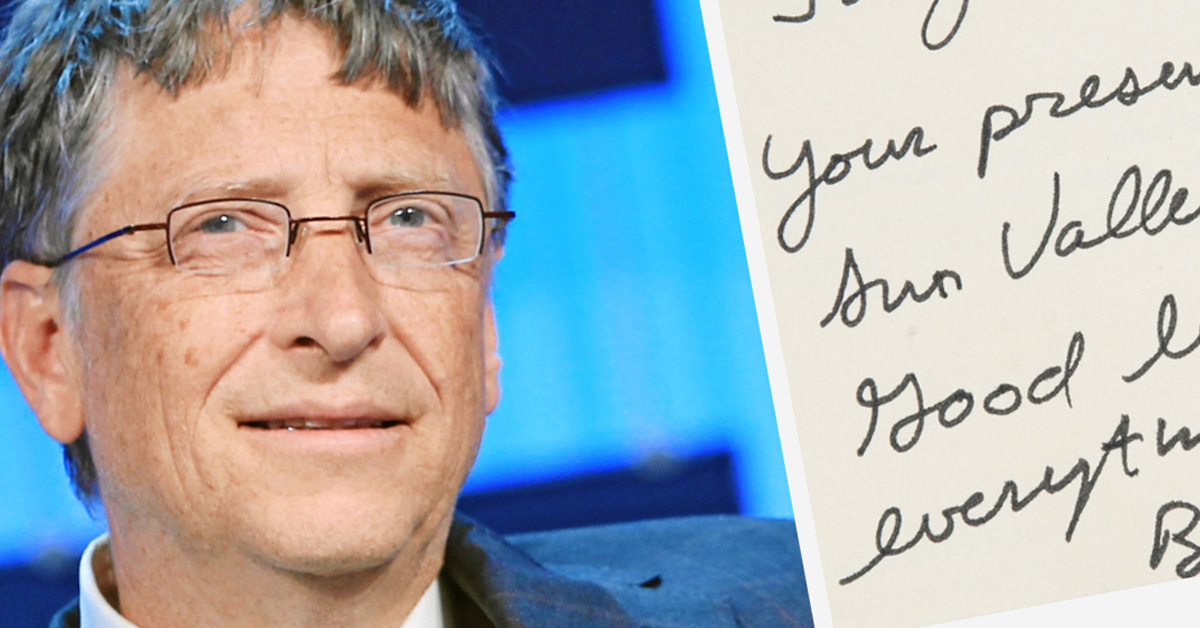 Your presen
Sun Valle
Good l
everythin
B